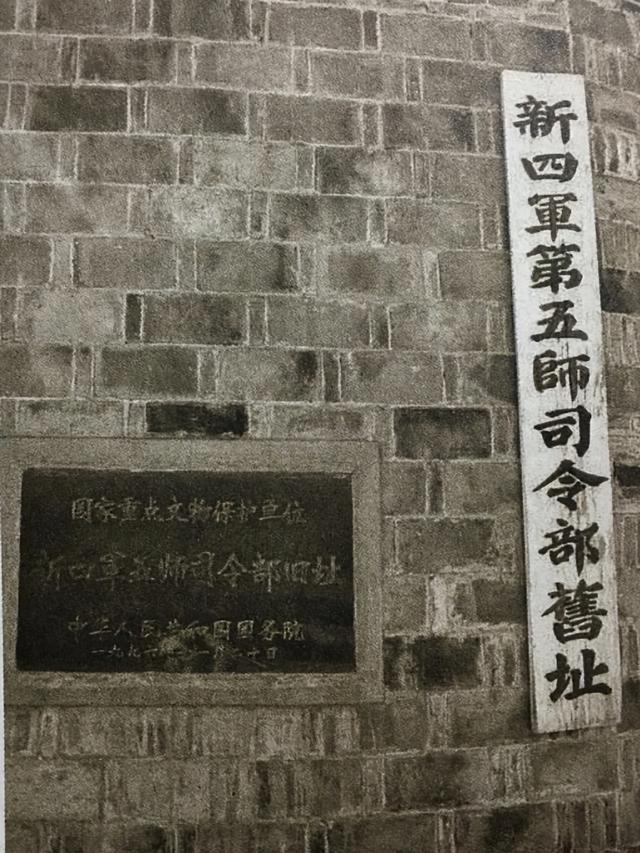 新四軍第五師司令部舊址
国家重点文物保护单位
新四军五师司令部旧址
中华人民共和国国务院
一九九六年十一月二十日